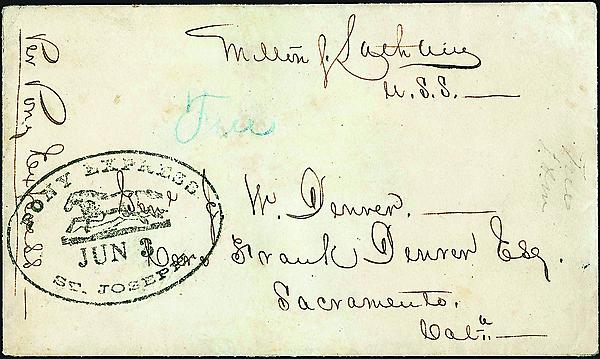 Milton J. Latham
U.S.S.
Free
Per Pony Express
PONY EXPRESS
JUN 3
ST. JOSEPH
Gen'l J. W. Denver.
Care Frank Denver Esq.
Sacramento.
Cala.